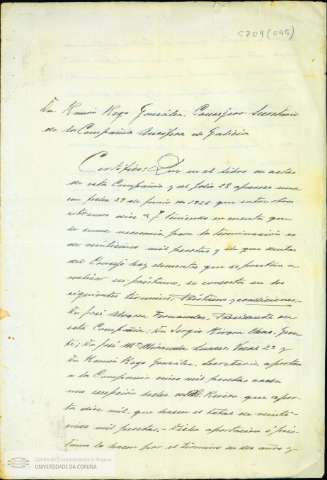 C204 (095)
Dn Ramón Rego González, Consejero Secretario
de la Compañía de Galicia
Certifico: Que en el libro de actas
de esta Compañía y al folio 28 aparece una
con fecha 29 de junio de 192 que entre otros
dice: teniendo en cuenta que
la suma necesaria para la terminación es
de mil pesetas y de que dentro
del Consejo hay elementos que se prestan a
realizar un préstamo, se concierta en los
siguientes términos y condiciones.
Dn José Fernández, Presidente de
esta Compañía; Dn Sergio
Dn José Mª Vocal 2º y
Dn Ramón Rego González, Secretario aportan
a la Compañía cinco mil pesetas cada
uno excepción hecha del Sr. Rivera que aporta
diez mil, que hacen el total de veinticinco
mil pesetas. - Dicha aportación o préstamo
la hacen por el término de dos años y
UNIVERSIDADE DA CORUÑA